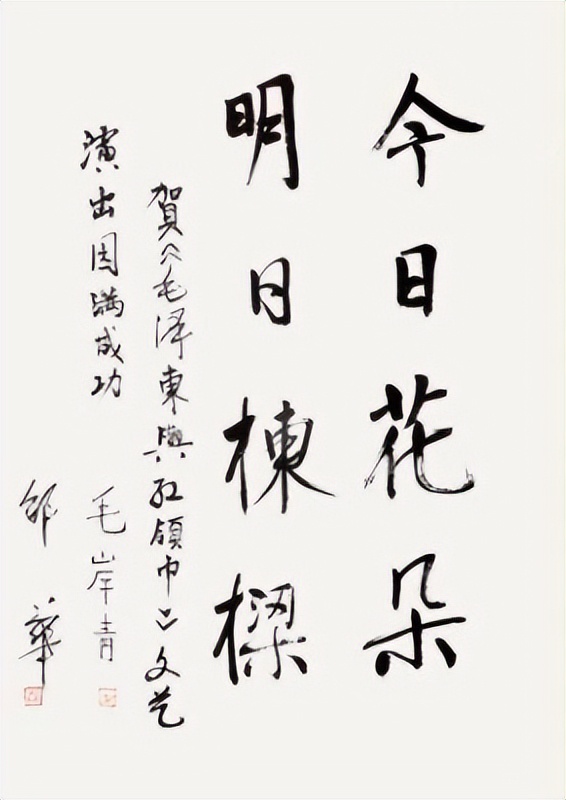 今日花朵
明日棟樑
賀《毛泽東與红領巾》文艺
演出圆满成功
毛岸青
邵華